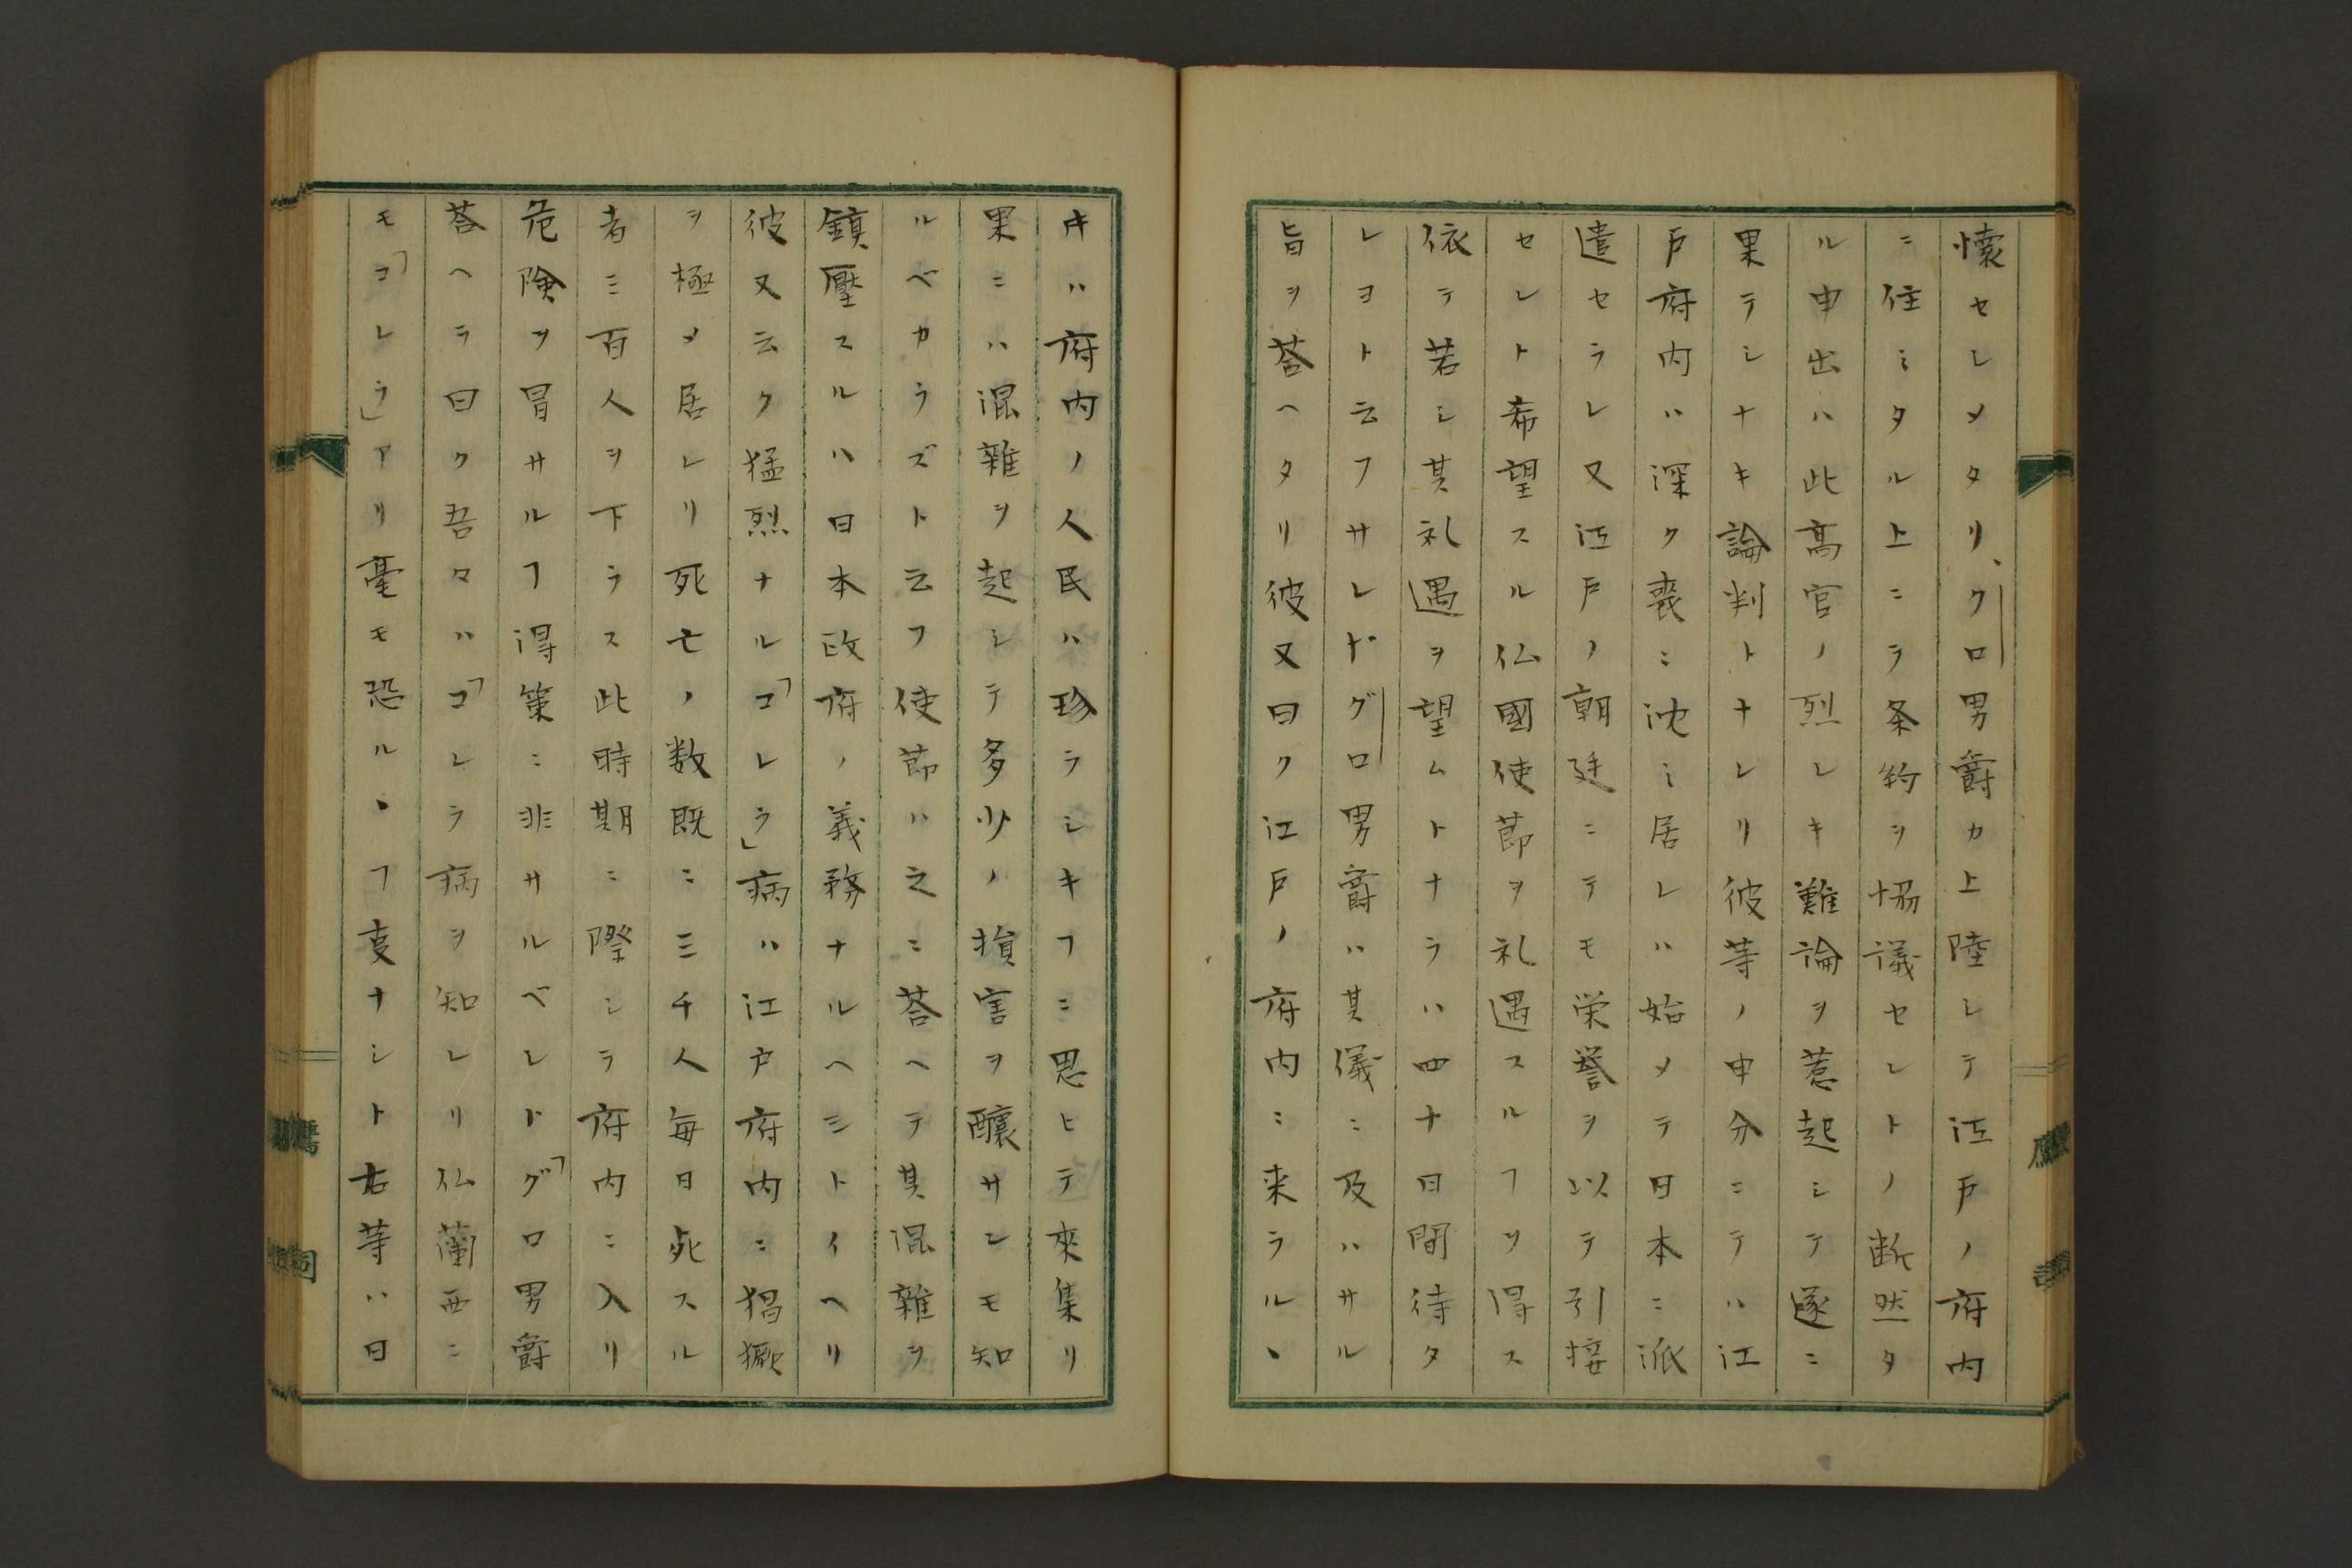 懐セシメタリ、クロ男爵カ上陸シテ江戸ノ府内
ニ住ミタル上ニテ条約ヲ協議セントノ断然タ
ル申出ハ此高官ノ烈シキ難論ヲ惹起シテ遂ニ
果テシナキ論判トナレリ彼等ノ申分ニテハ江
戸府内ハ深ク喪ニ沈ミ居レハ始メテ日本ニ派
遣セラレ又江戸ノ朝廷ニテモ栄誉ヲ以テ引接
セント希望スル仏國使節ヲ礼遇スルヿヲ得ス
依テ若シ其礼遇ヲ望ムトナラハ四十日間待タ
レヨト云フサレドグロ男爵ハ其儀ニ及ハサル
旨ヲ荅ヘタリ彼又曰ク江戸ノ府内ニ来ラルヽ
キハ府内ノ人民ハ珍ラシキヿニ思ヒテ來集リ
果ニハ混雑ヲ起シテ多少ノ損害ヲ釀サンモ知
ルベカラズト云フ使節ハ之ニ荅ヘテ其混雜ヲ
鎮壓スルハ日本政府ノ義務ナルヘシトイヘリ
彼又云ク猛烈ナル「コレラ」病ハ江戸府内ニ猖獗
ヲ極メ居レリ死亡ノ数既ニ三千人毎日死スル
者三百人ヲ下ラス此時期ニ際シテ府内ニ入リ
危険ヲ冒サルヿ得策ニ非サルベシト「グロ男爵
荅ヘテ曰ク吾タハ「コレラ病ヲ知レリ仏蘭西ニ
モ「コレラ」アリ毫モ恐ルヽヿ更ナシト右等ハ日